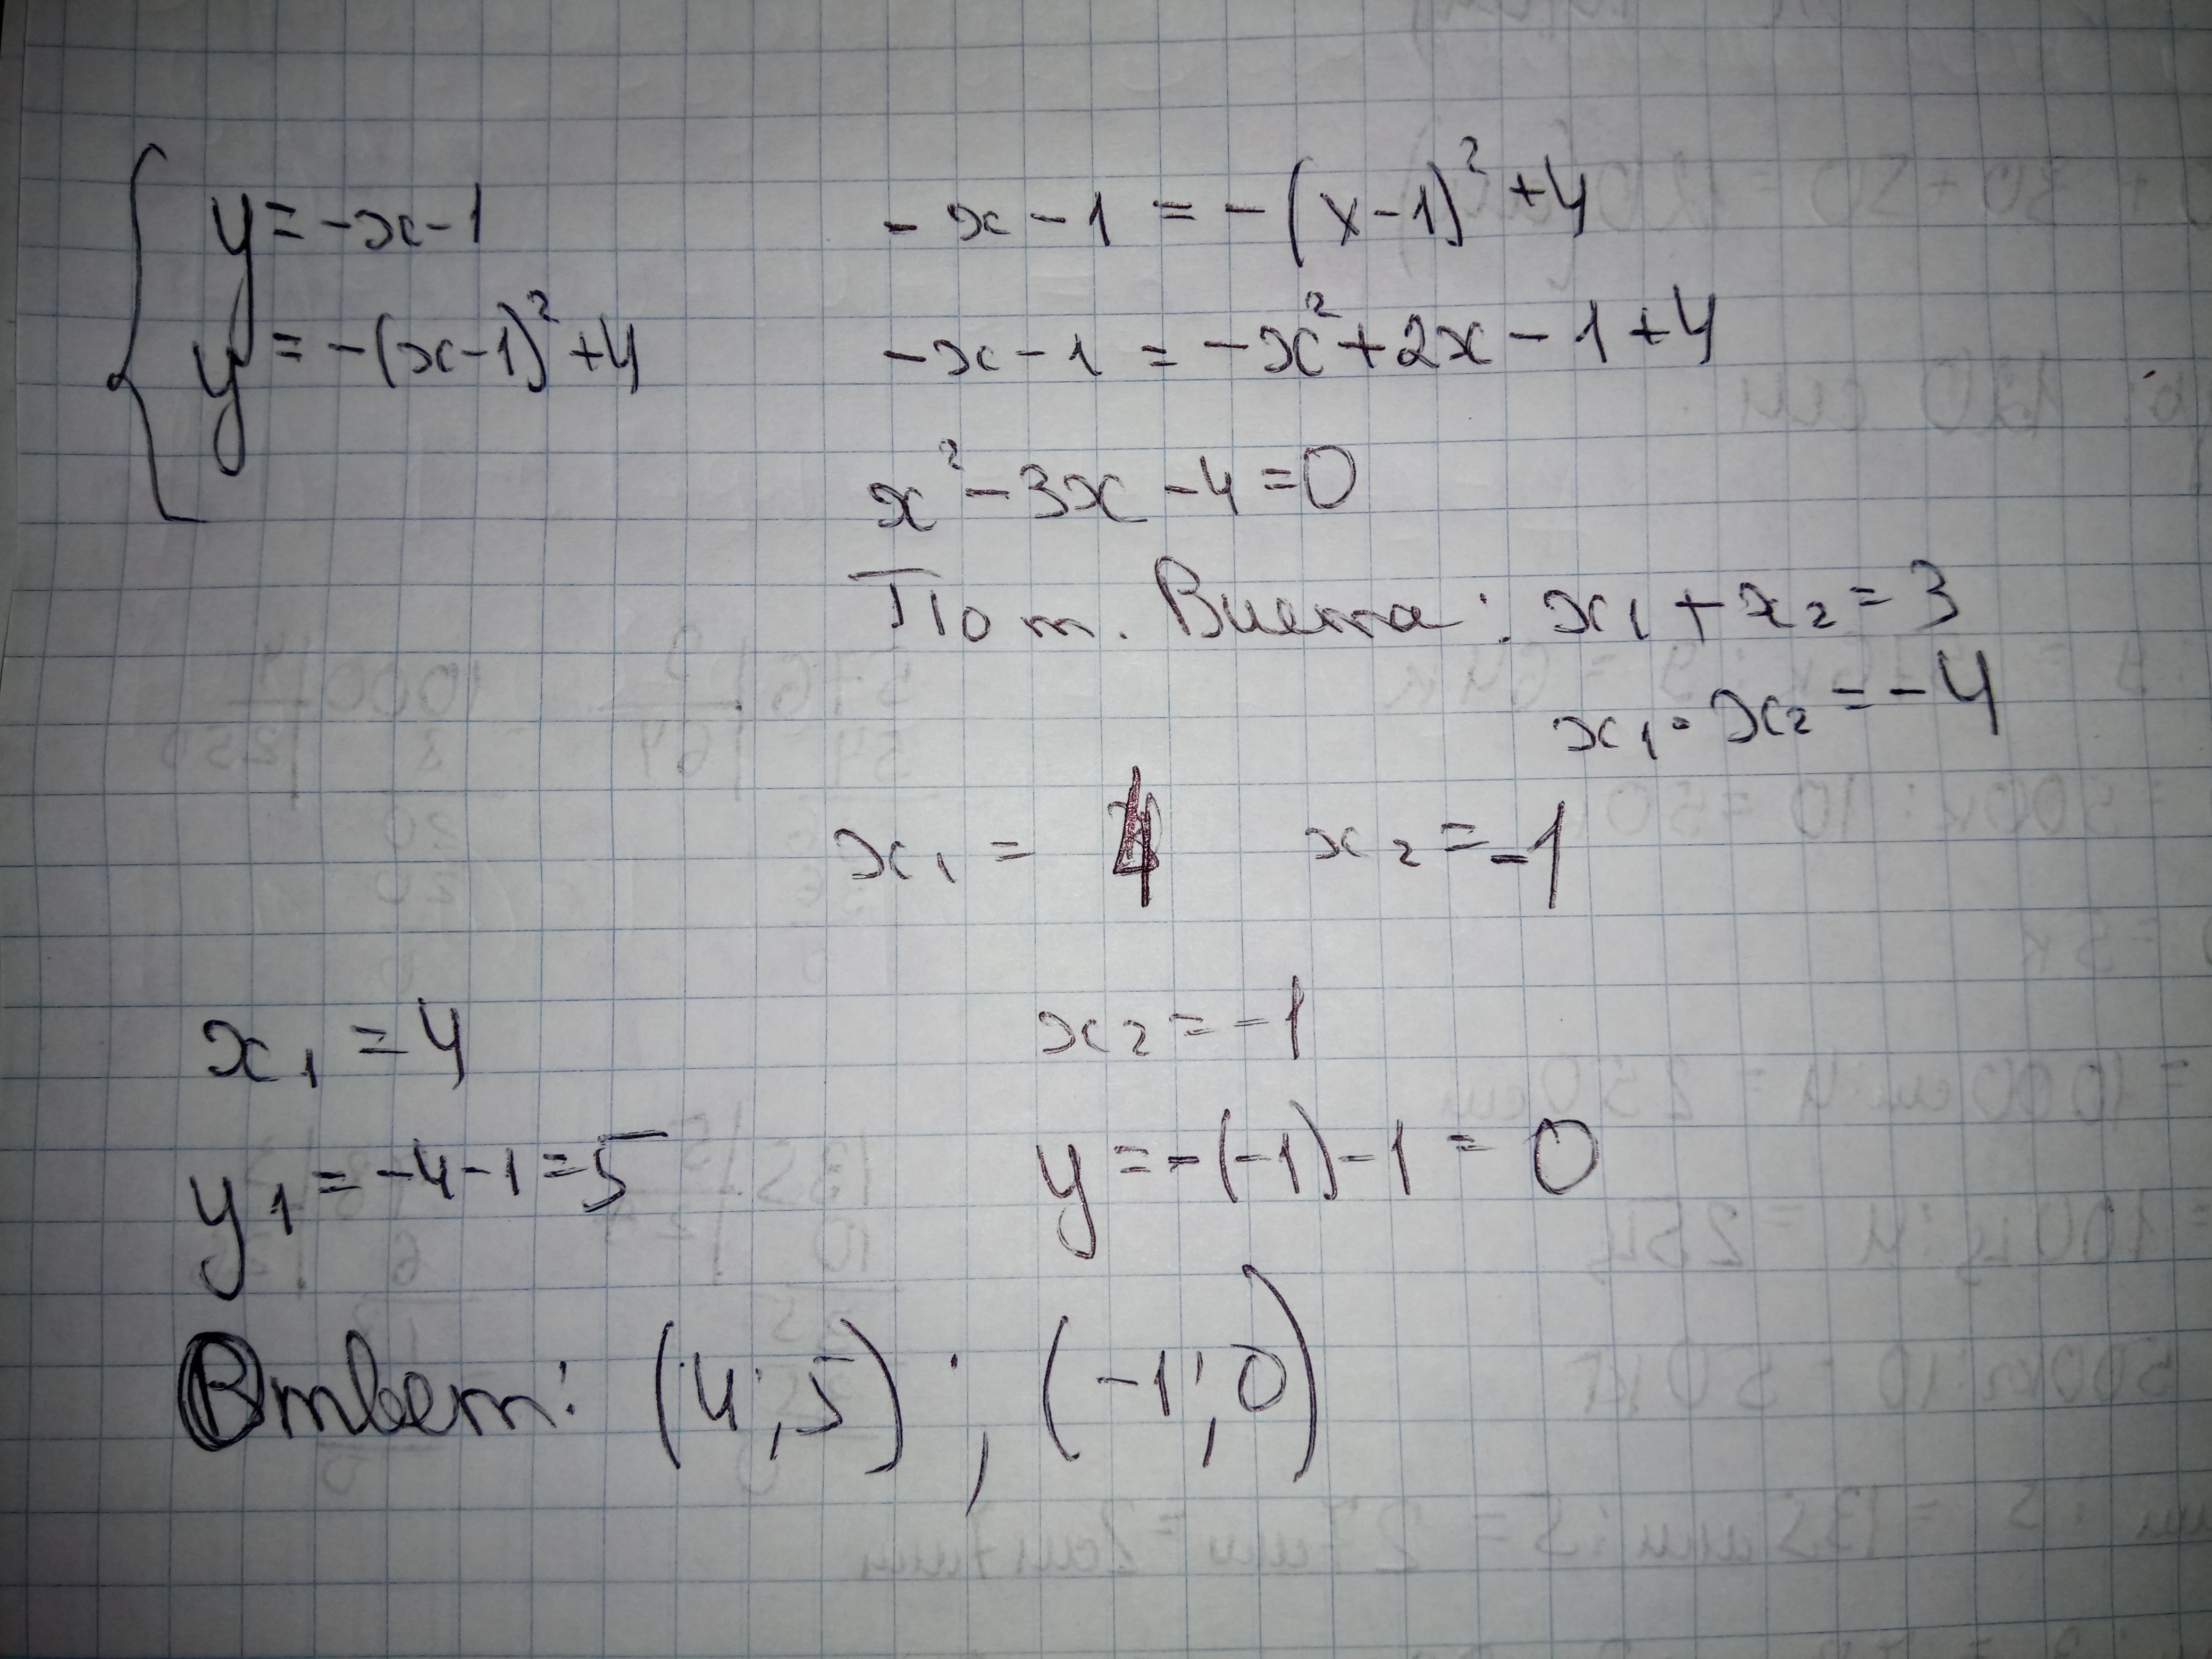 y = -x-1
y = -(x-1)² +4
-x-1 = -(x-1)² +4
-x-1 = -x²+2x-1+4
x²-3x-4=0
По т. Виета: x₁+x₂=3
x₁·x₂=-4
x₁ = 4 x₂=-1
x₁=4 x₂=-1
y₁=-4-1=5 y=-(-1)-1=0
Ответ: (4;5) ; (-1;0)